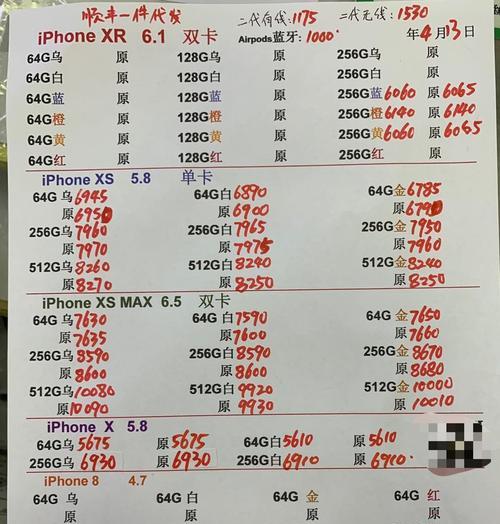 顺丰一件代发 二代有线:1175 二代无线:1530
iPhone XR 6.1 双卡 Airpods蓝牙:1000. 年4月13日
64G乌 原 128G乌 原 256G乌 原
64G白 原 128G白 原 256G白 原
64G蓝 原 128G蓝 原 256G蓝6060 原6065
64G橙 原 128G橙 原 256G橙6140 原6140
64G黄 原 128G黄 原 256G黄6060 原6065
64G红 原 128G红 原 256G红 原
iPhone XS 5.8 单卡
64G乌6945 64G白6890 64G金6785
原6950 原6900 原6790
256G乌7960 256G白7965 256G金7950
原7970 原7975 原7960
512G乌8260 512G白8240 512G金8240
原8270 原8250 原8250
iPhone XS MAX 6.5 双卡
64G乌7630 64G白7590 64G金7650
原7635 原7600 原7660
256G乌8590 256G白8590 256G金8670
原8600 原8600 原8680
512G乌10080 512G白9920 512G金10000
原10090 原9930 原10010
iPhone X 5.8
64G乌5675 原5675 64G白5610 原5610
256G乌6930 原6930 256G白6910 原6910.
iPhone 8 4.7
64G乌 64G白 64G金 64G红
原 原 原 原